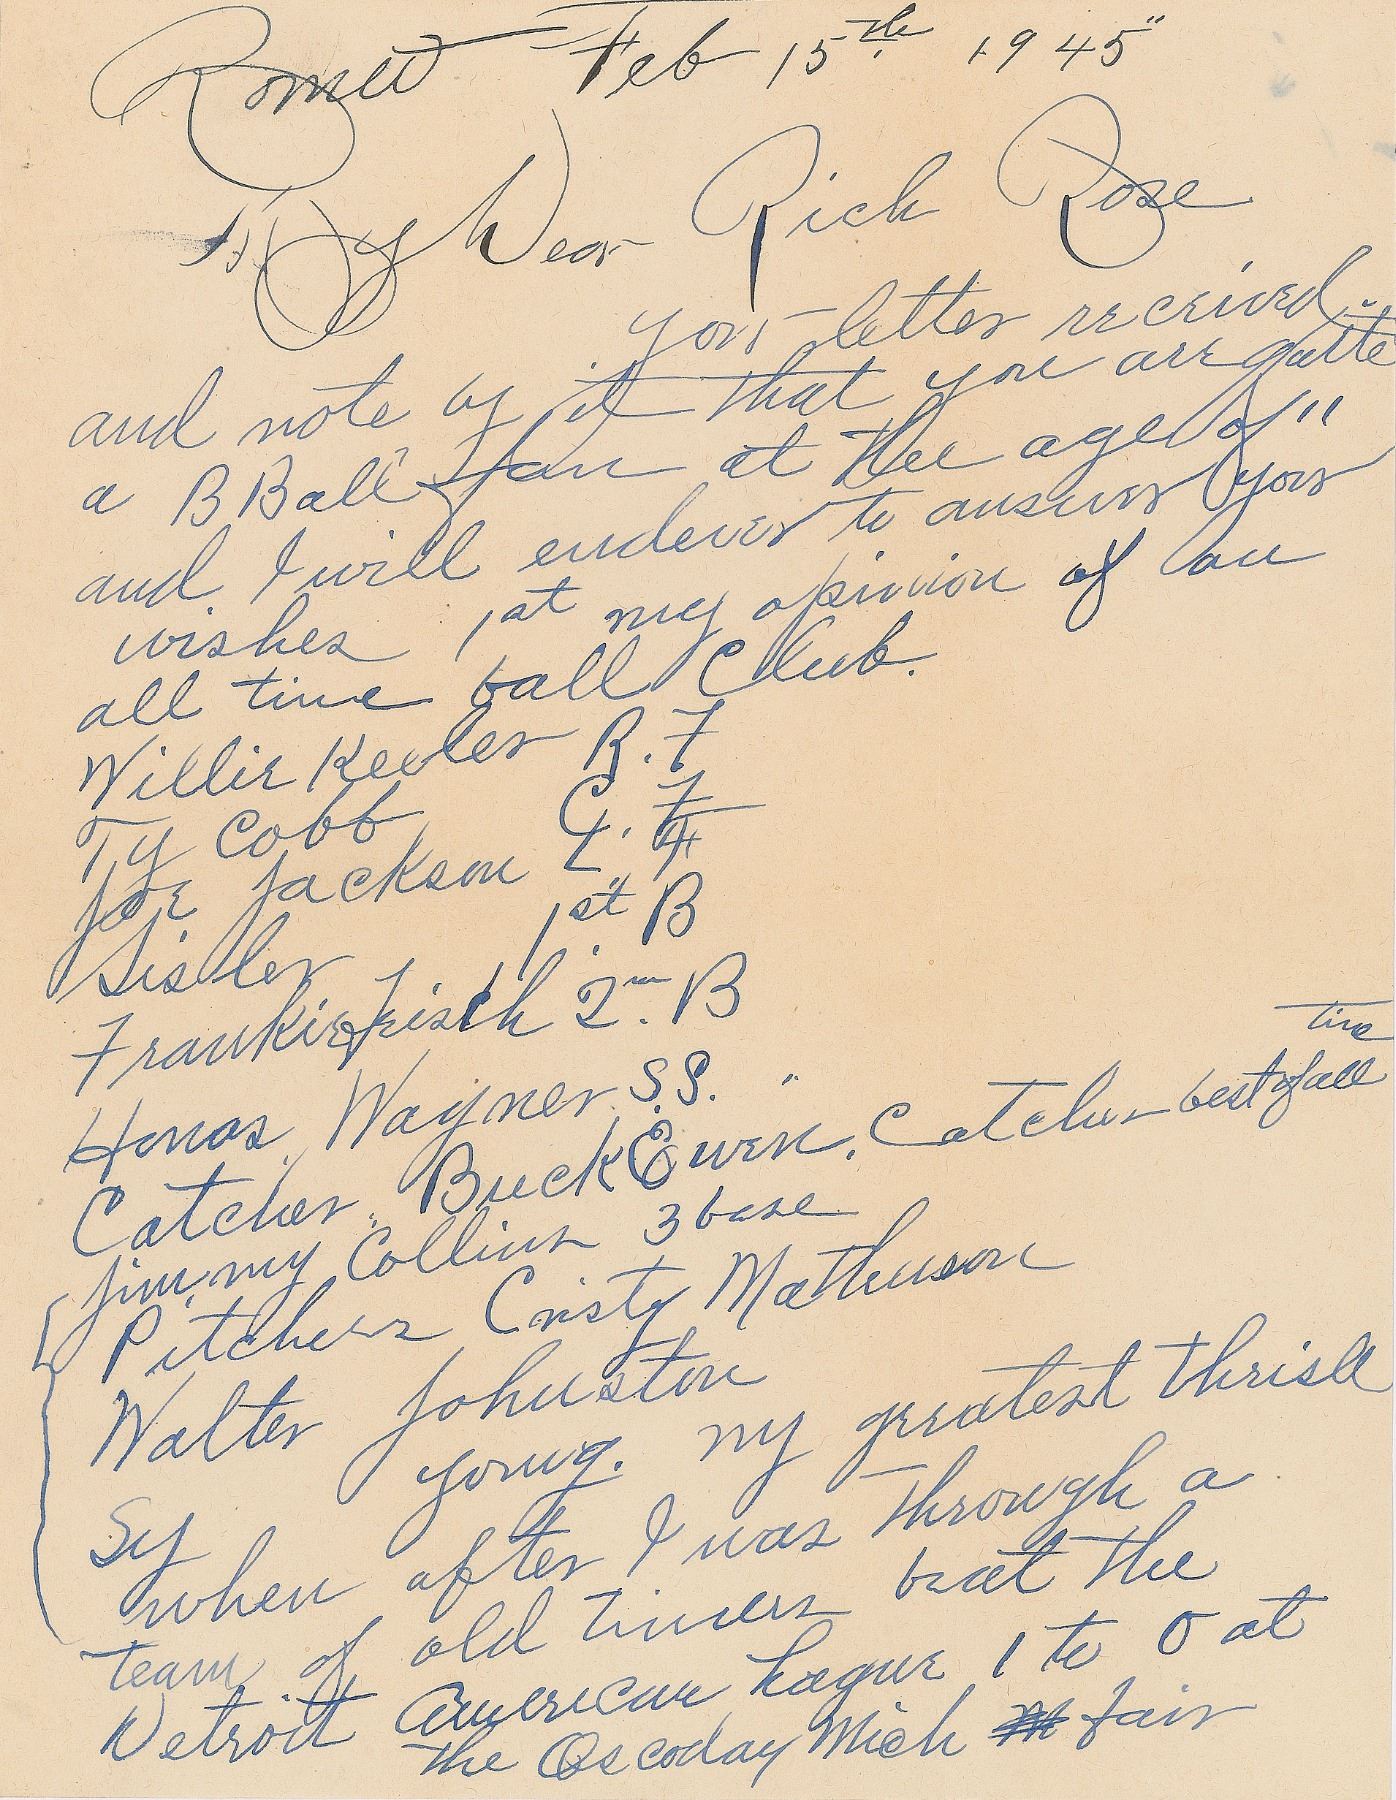 Feb 15th 1945"
My Dear Rich Rose
your letter received
and note by it that you are quite
a B Ball fan at the age of 11
and. I will endever to answer your
wishes, at my opinion of an
all time ball Club.
Willie Keeler R. F
Ty Cobb C. F
Joe Jackson L. F
Sisler 1st B
Frankie Frisch 2nd B
Honas Wagner S.S.
time
Catcher. Buck Ewen. Catcher best of all
Jimmy Collins 3 base
Pitchers Cristy Mathuson
Walter Johnston
Sy young. my greatest thrill
when after I was through a
team of old timers beat the
Detroit American League 1 to 0 at
the Oscoday Mich fair